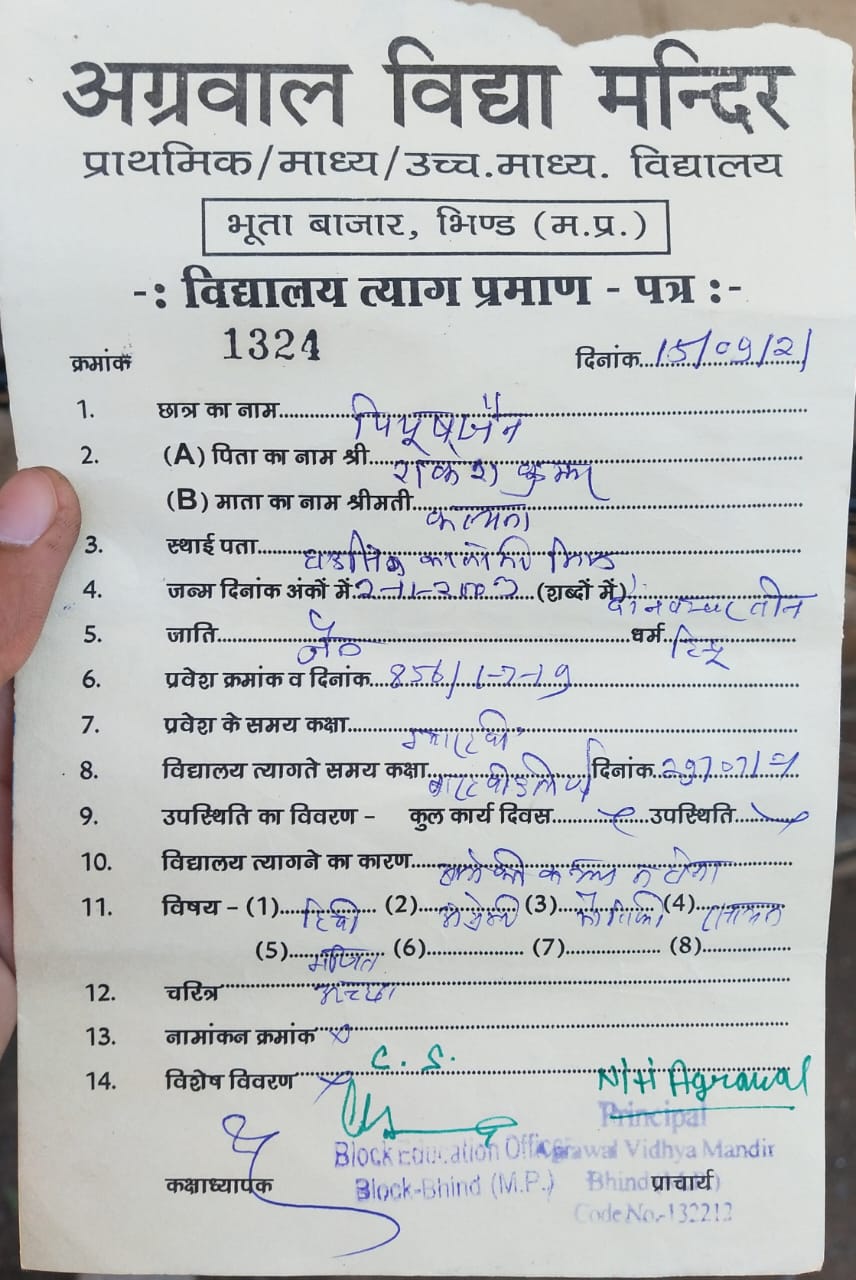 अग्रवाल विद्या मन्दिर
प्राथमिक/माध्य/उच्च.माध्य. विद्यालय
भूता बाजार, भिण्ड (म.प्र.)
-: विद्यालय त्याग प्रमाण - पत्र :-
क्रमांक 1324 दिनांक 15/09/21
1. छात्र का नाम पियूष जैन
2. (A) पिता का नाम श्री राकेश कुमार
(B) माता का नाम श्रीमती कल्पना
3. स्थाई पता
4. जन्म दिनांक अंकों में 2-11-2003 (शब्दों में) दो नवम्बर तीन
5. जाति जैन धर्म हिन्दू
6. प्रवेश क्रमांक व दिनांक 856/1-7-19
7. प्रवेश के समय कक्षा ग्यारहवी
8. विद्यालय त्यागते समय कक्षा बारहवी उत्तीर्ण दिनांक
9. उपस्थिति का विवरण - कुल कार्य दिवस उपस्थिति
10. विद्यालय त्यागने का कारण आगे की कक्षा न होना
11. विषय - (1) हिन्दी (2) अंग्रेजी (3) भौतिकी (4) रसायन
(5) गणित (6) (7) (8)
12. चरित्र अच्छा
13. नामांकन क्रमांक
14. विशेष विवरण
C. S.
Niti Agrawal
Principal
Block Education Officer
Agrawal Vidhya Mandir
Block-Bhind (M.P.)
Bhind (M.P.)
कक्षाध्यापक प्राचार्य
Code No.-132212